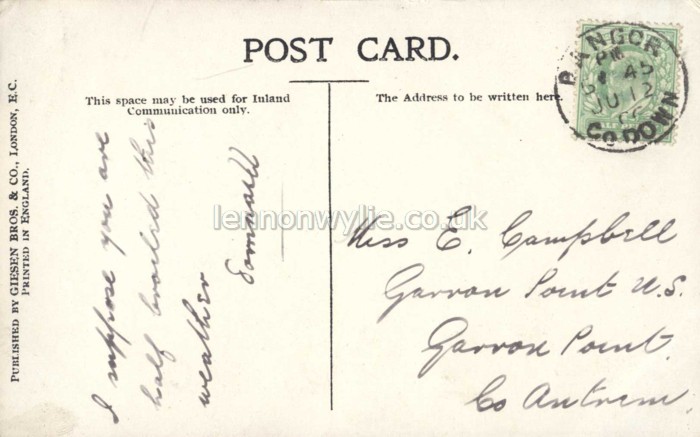 POST CARD.
This space may be used for Inland
Communication only.
The Address to be written here.
PUBLISHED BY GIESEN BROS. & CO., LONDON, E.C.
PRINTED IN ENGLAND.
I suppose you are
half broiled this
weather
Miss E. Campbell
Garron Point U.S.
Garron Point.
Co Antrim.
BANGOR
PM
45
JU 12
CO DOWN
lennonwylie.co.uk